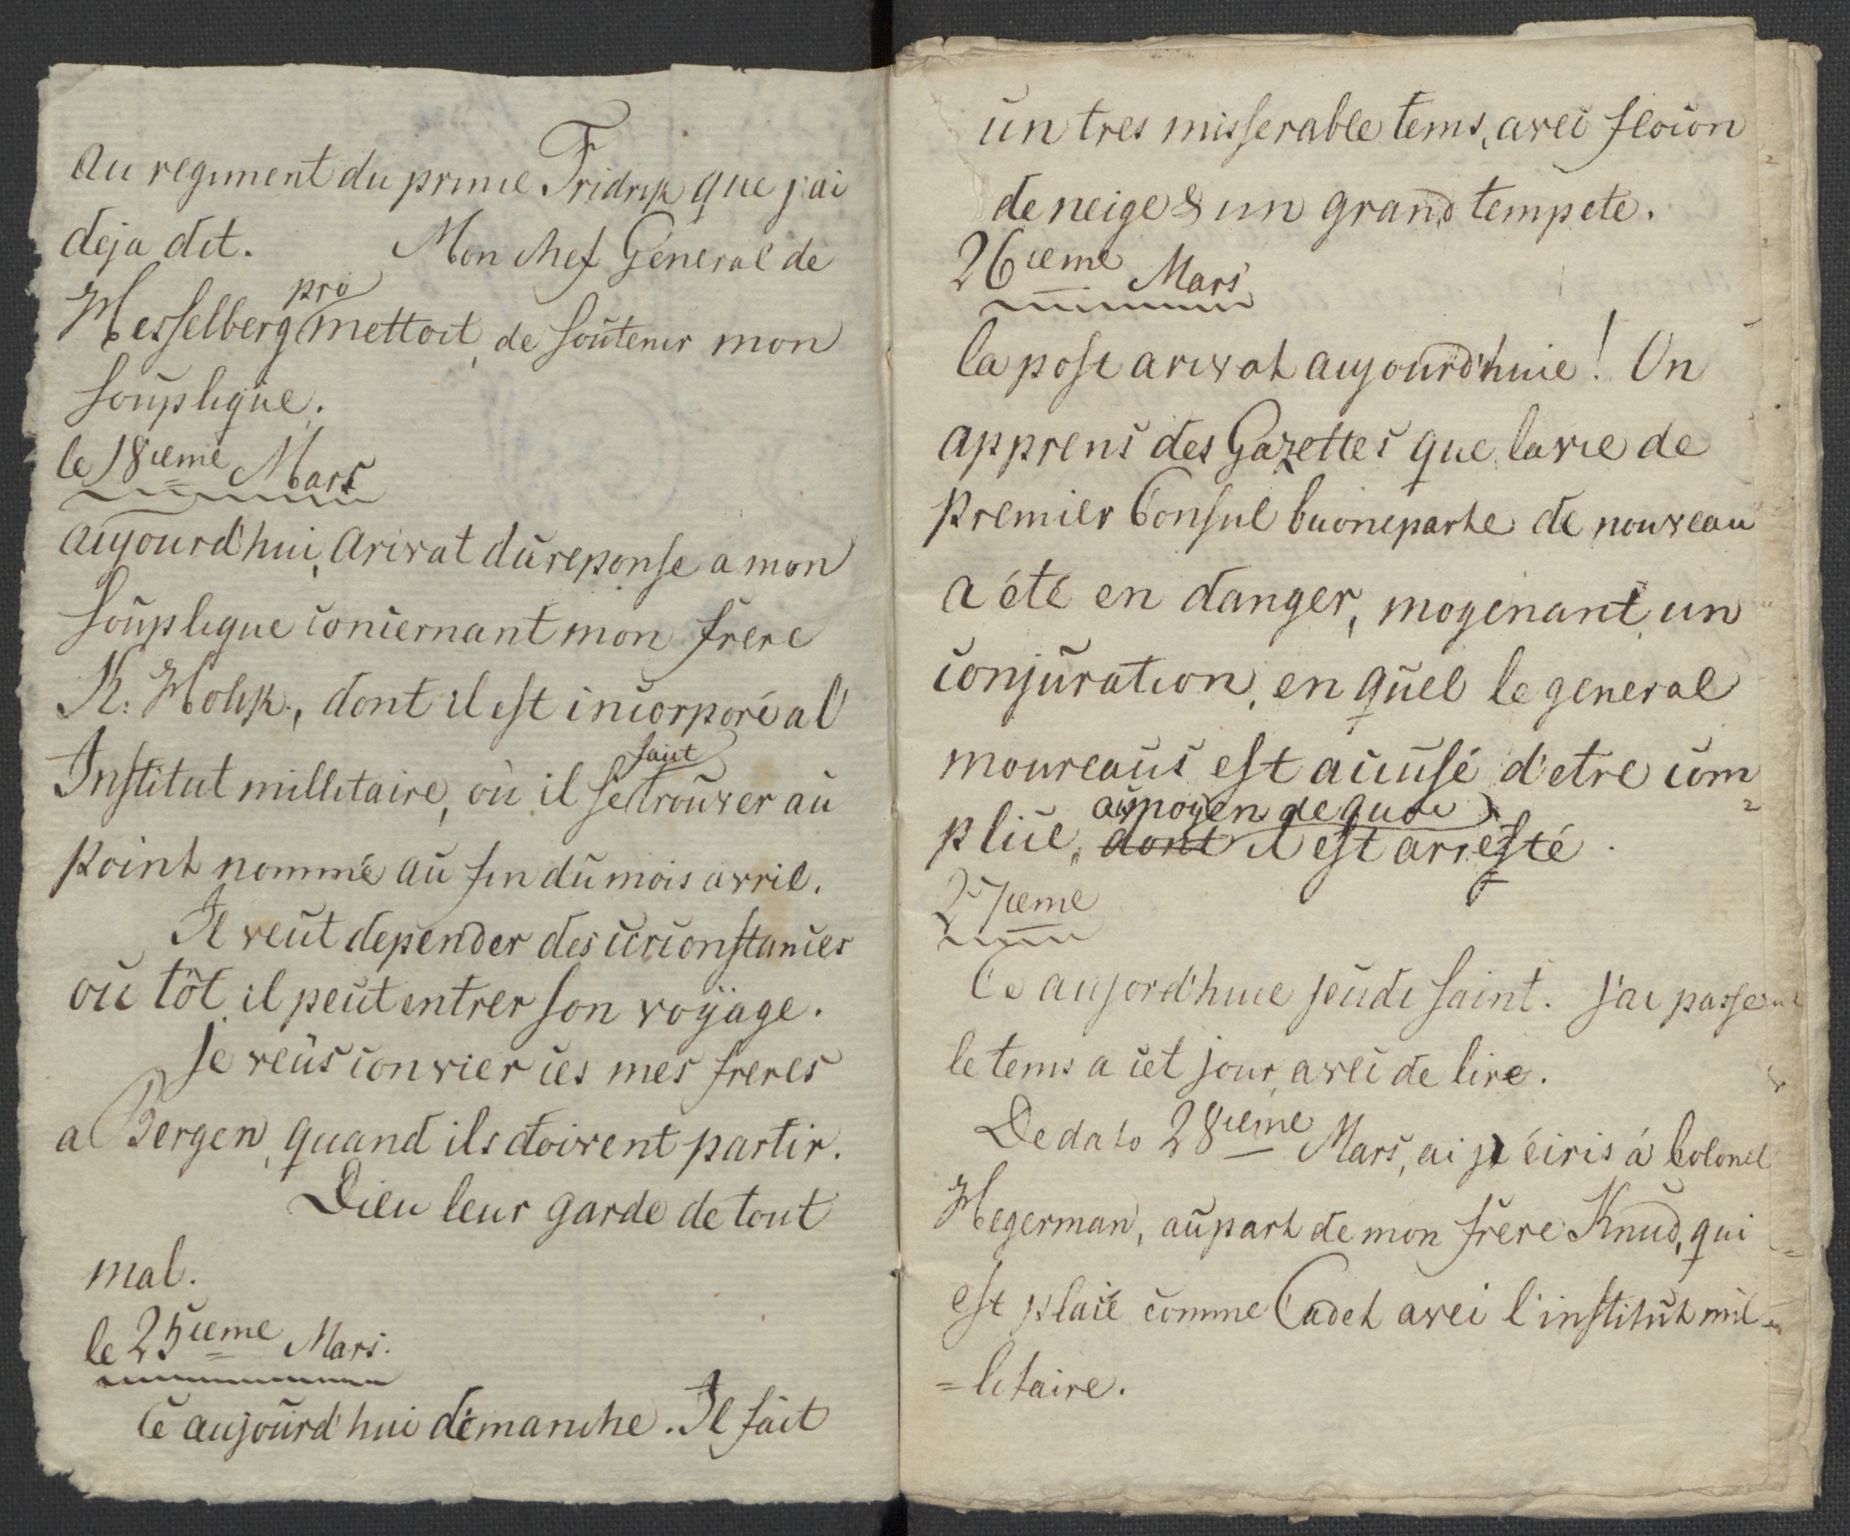 au regiment du prince Fridrik que j'ai
deja dit. Mon chef General de
pro
Hesselberg mettoit, de soutenir mon
souplique.
le 18ieme Mars
aujourd'hui, arivat du reponse a mon
souplique concernant mon frere
K: Holck, dont il est incorporé al'
Institut millitaire, où il se trouver au
faut
point nommé au fin du mois avril.
Il veut depender des circonstances
ou tôt il peut entrer son voÿage.
Je veus convier ces mes freres
a Bergen, quand ils doivent partir.
Dieu leur garde de tout
mal.
le 25ieme Mars.
Ce aujourd'hui demanche. Il fait
un tres misserable tems, avec flocon
de neige & un grand tempete.
26ieme Mars
la post arivat aujourd'huie! On
apprens des Gazettes que la vie de
premier Consul buoneparte de nouveau
a été en danger, mogenant un
conjuration, en quel le general
moureaus est accusé d'etre com
aumoyen de quoi
plice, dont il est arresté.
27ieme
Ce aujord'huie jeudi saint. J'ai passe
le tems a cet jour, avec de lire.
De dato 28ieme Mars, ai je écris á Colonel
Hegerman, aupart de mon frere Knud, qui
est placé comme Cadet avec l'institut mil-
=litaire.